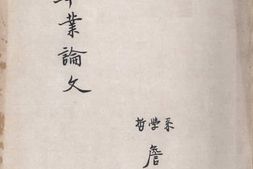 畢業論文
哲學系
詹